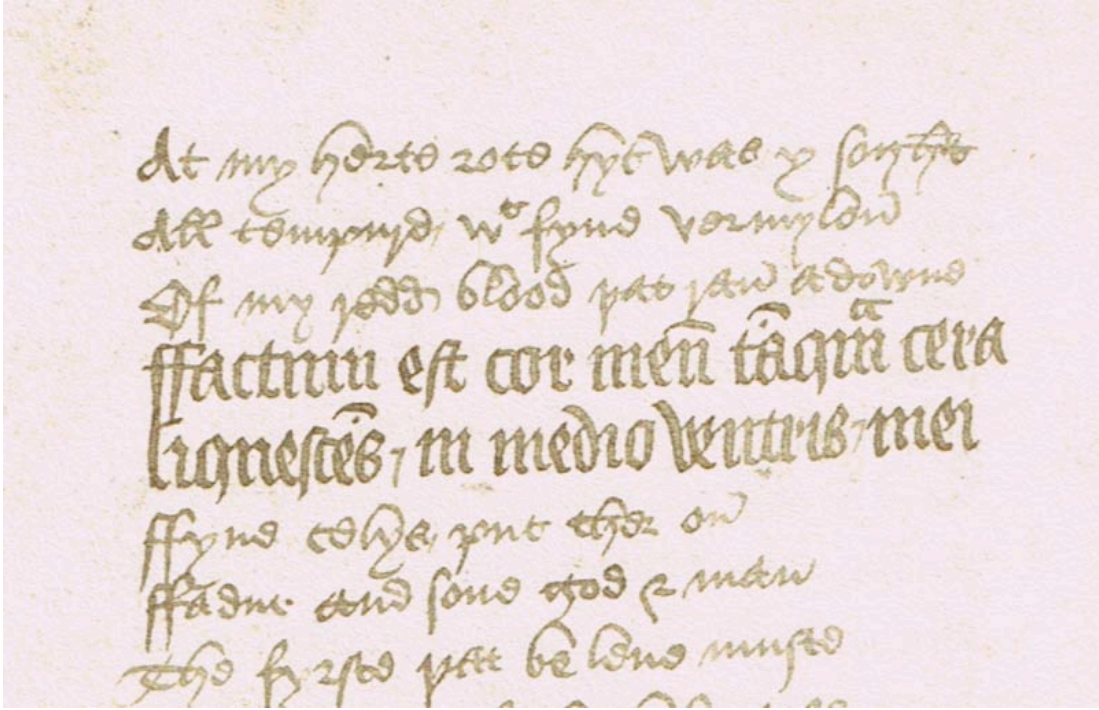 At my herte rote hyt was y sought
All tempryd wt fyne vermylon
Of my redd blood þat ran adowne
ffactum est cor meū tāqm cera
liquescēs, in medio ventris mei
ffyue celys put ther on
ffadur and sone god & man
The fyrste þat be leue muste